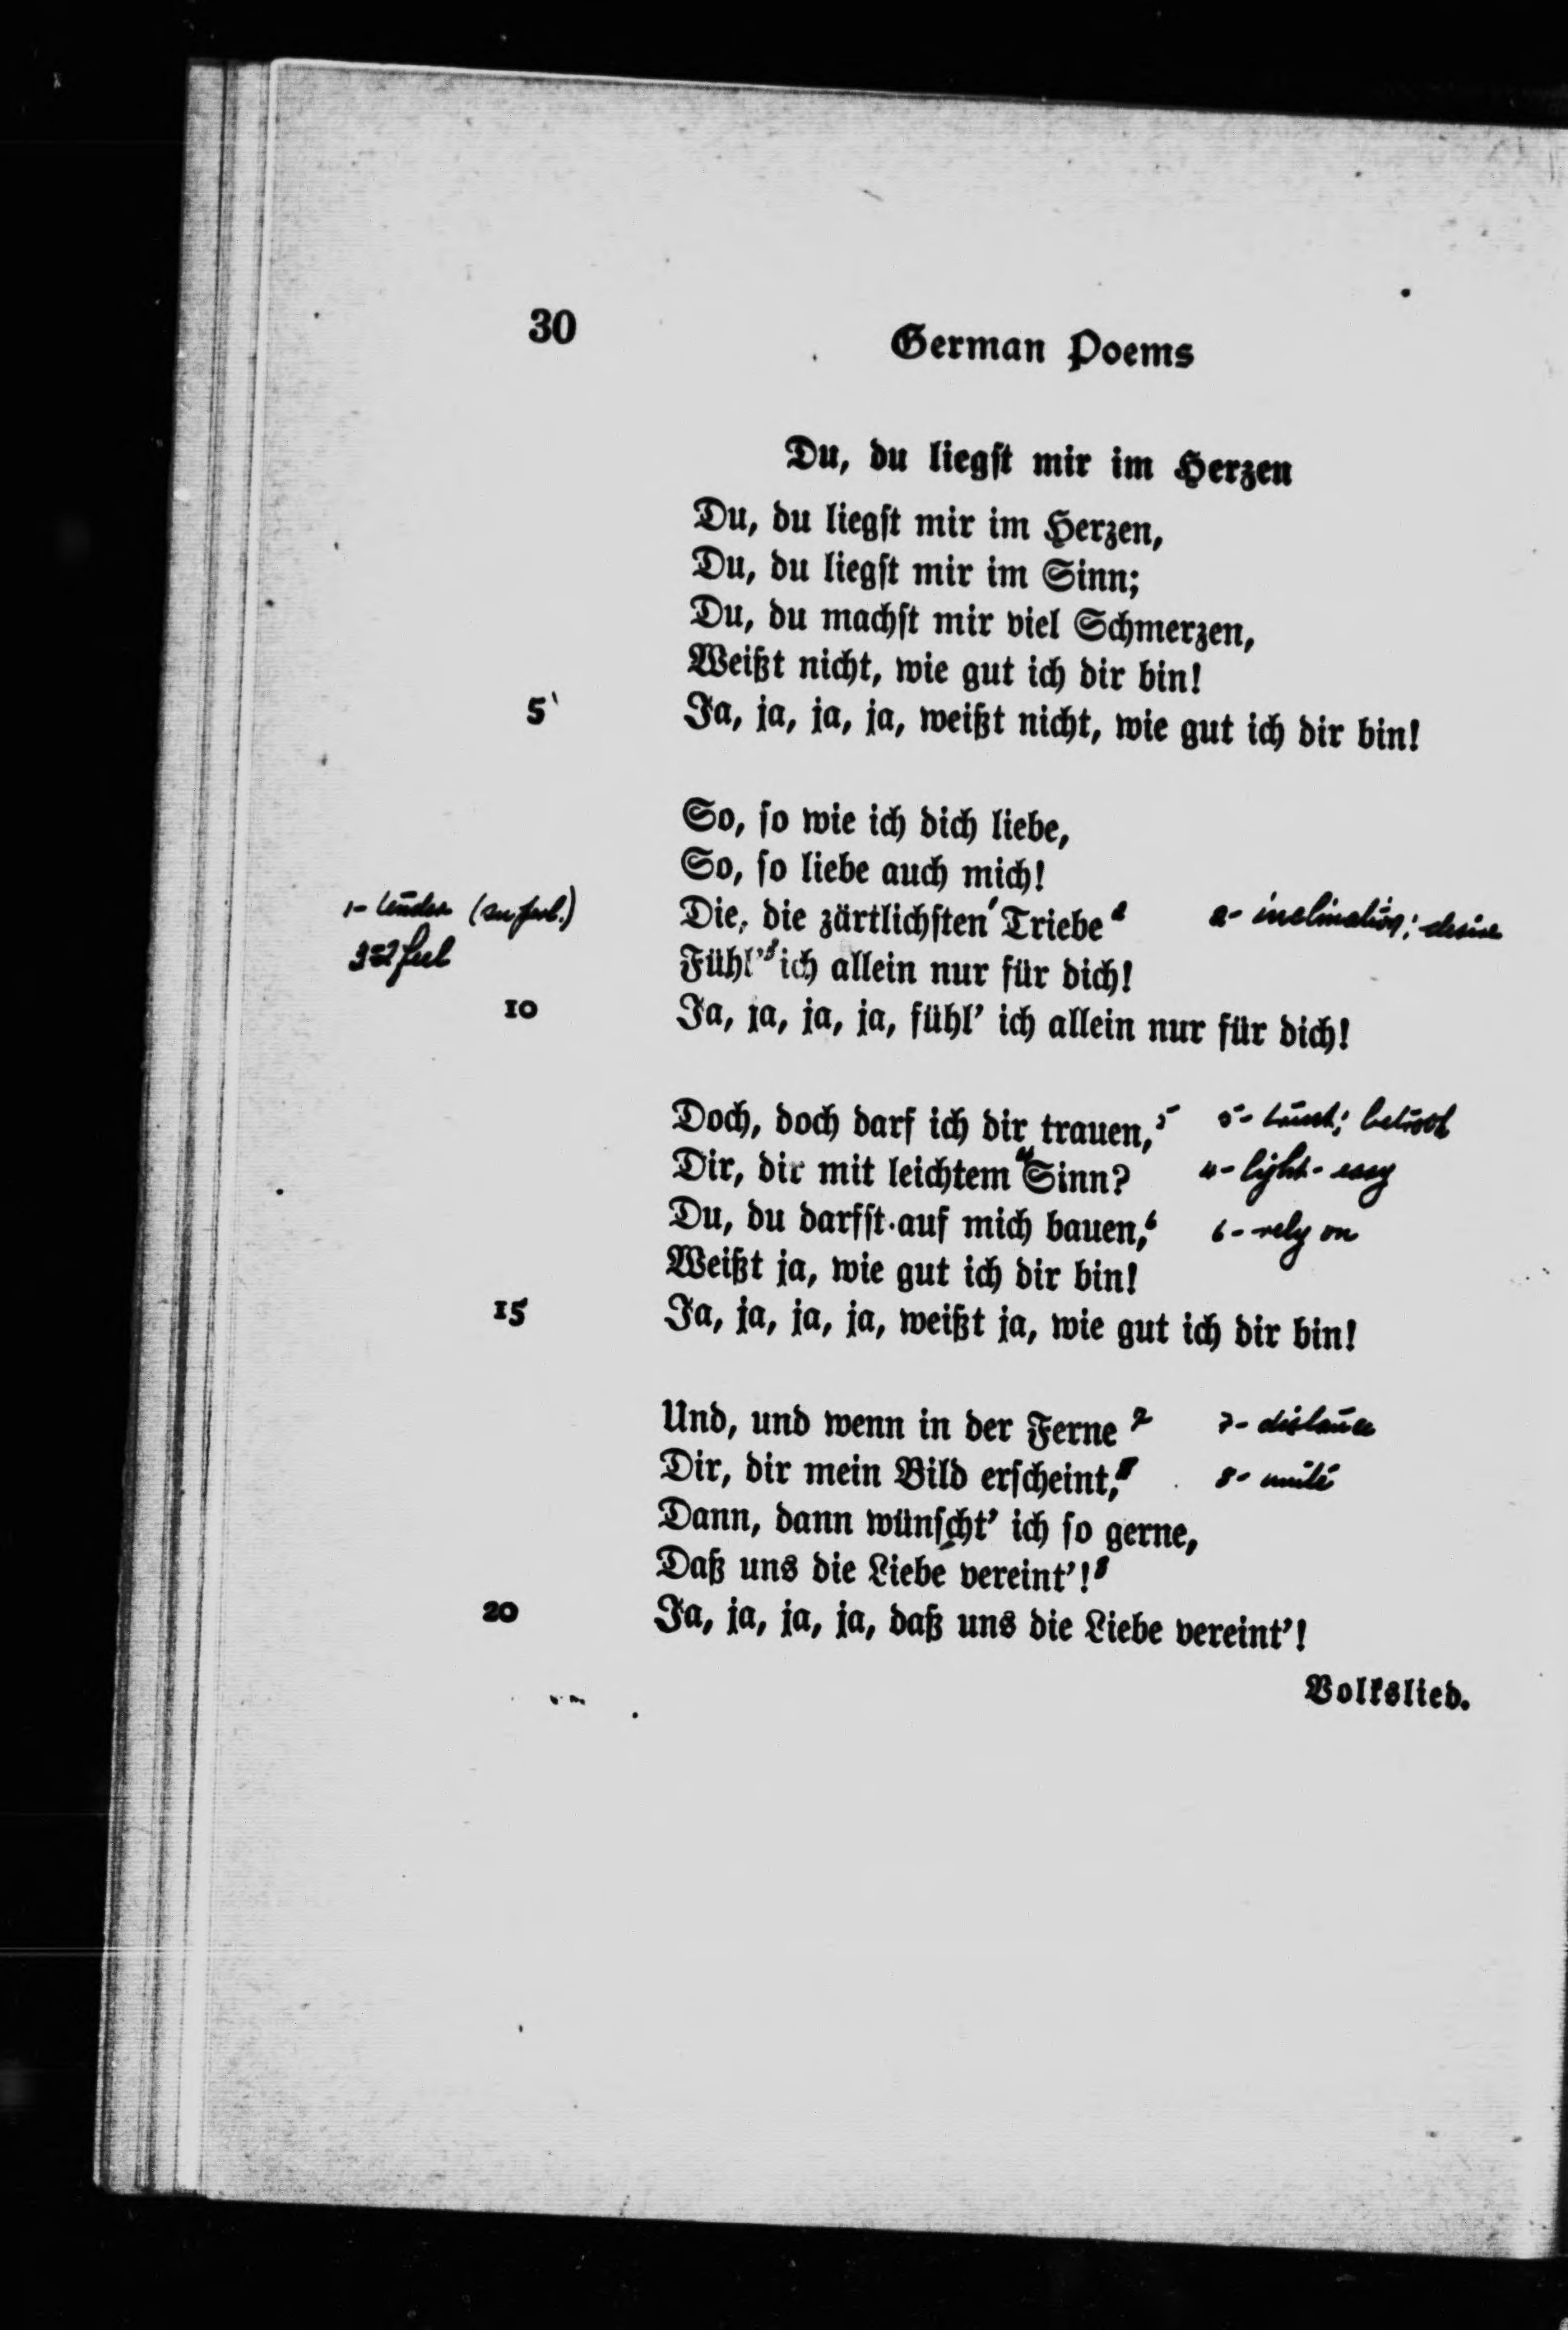 30
German Poems
Du, du liegst mir im Herzen
Du, du liegst mir im Herzen,
Du, du liegst mir im Sinn;
Du, du machst mir viel Schmerzen,
Weißt nicht, wie gut ich dir bin!
5 Ja, ja, ja, ja, weißt nicht, wie gut ich dir bin!
So, so wie ich dich liebe,
So, so liebe auch mich!
1- tender (superl.) Die, die zärtlichsten¹ Triebe² 2- inclination; desire
3- feel Fühl'³ ich allein nur für dich!
10 Ja, ja, ja, ja, fühl' ich allein nur für dich!
Doch, doch darf ich dir trauen,⁵ 5- trust; betroth
Dir, dir mit leichtem⁴ Sinn? 4- light- easy
Du, du darfst auf mich bauen,⁶ 6- rely on
Weißt ja, wie gut ich dir bin!
15 Ja, ja, ja, ja, weißt ja, wie gut ich dir bin!
Und, und wenn in der Ferne⁷ 7- distance
Dir, dir mein Bild erscheint,⁸ 8- unite
Dann, dann wünscht' ich so gerne,
Daß uns die Liebe vereint'!⁸
20 Ja, ja, ja, ja, daß uns die Liebe vereint'!
Volkslied.